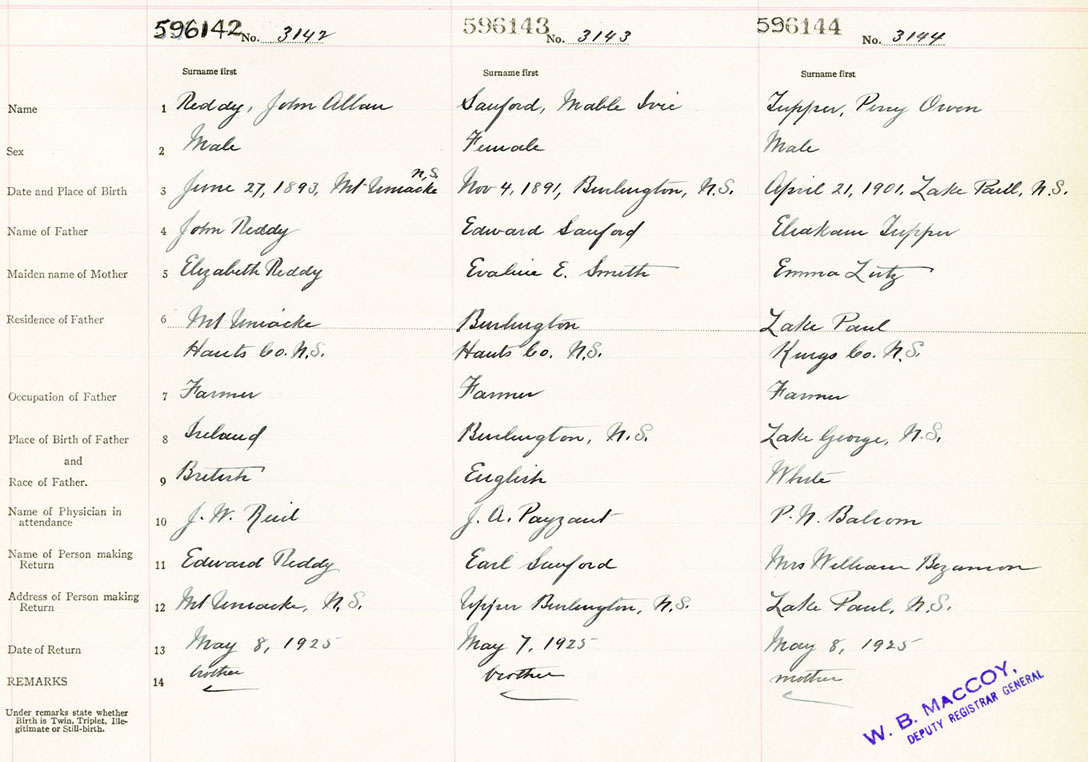 596142 No. 3142 596143 No. 3143 596144 No. 3144
Surname first Surname first Surname first
Name 1 Reddy, John Allan Sanford, Mable Ivie Tupper, Percy Owen
Sex 2 Male Female Male
N.S.
Date and Place of Birth 3 June 27, 1893, Mt Uniacke Nov 4, 1891, Burlington, N.S. April 21, 1901, Lake Paul, N.S.
Name of Father 4 John Reddy Edward Sanford Eliakam Tupper
Maiden name of Mother 5 Elizabeth Reddy Evaline E. Smith Emma Lutz
Residence of Father 6 Mt Uniacke Burlington Lake Paul
Hants Co. N.S. Hants Co. N.S. Kings Co. N.S.
Occupation of Father 7 Farmer Farmer Farmer
Place of Birth of Father 8 Ireland Burlington, N.S. Lake George, N.S.
and
Race of Father. 9 British English White
Name of Physician in
attendance 10 J. W. Reid J. A. Payzant P. N. Balcom
Name of Person making
Return 11 Edward Reddy Earl Sanford Mrs William Bezanson
Address of Person making
Return 12 Mt Uniacke, N.S. Upper Burlington, N.S. Lake Paul, N.S.
Date of Return 13 May 8, 1925 May 7, 1925 May 8, 1925
REMARKS 14 brother brother mother
Under remarks state whether
Birth is Twin, Triplet, Ille-
gitimate or Still-birth.
W. B. MACCOY,
DEPUTY REGISTRAR GENERAL